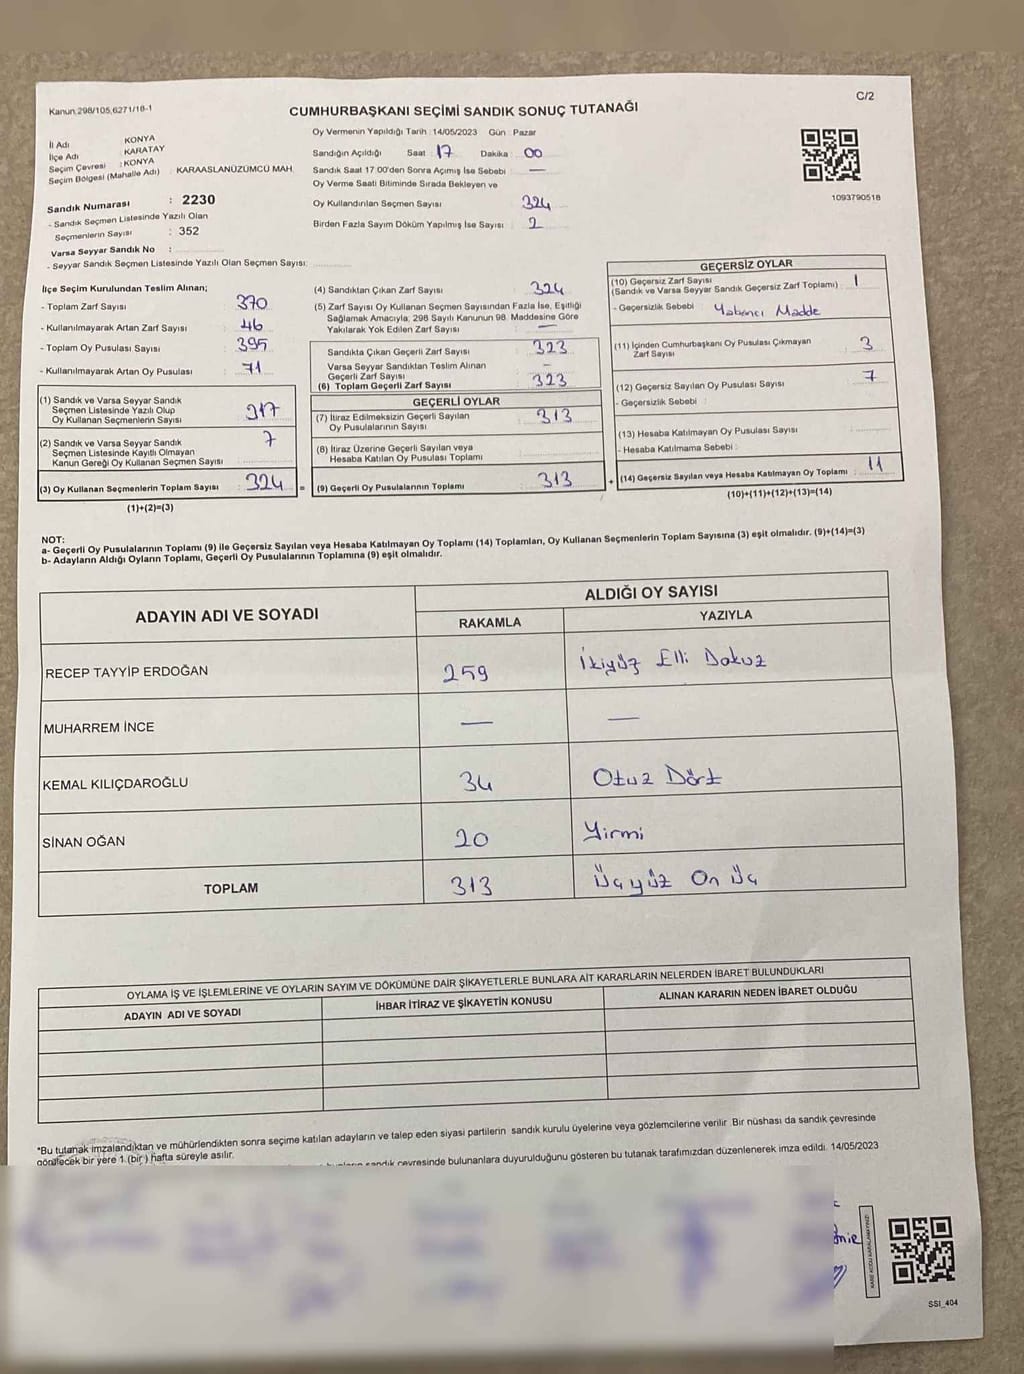 Kanun 298/105,6271/18-1
C/2
CUMHURBAŞKANI SEÇİMİ SANDIK SONUÇ TUTANAĞI
İl Adı : KONYA
İlçe Adı : KARATAY
Seçim Çevresi : KONYA
Seçim Bölgesi (Mahalle Adı) : KARAASLANÜZÜMCÜ MAH.
Sandık Numarası : 2230
- Sandık Seçmen Listesinde Yazılı Olan
Seçmenlerin Sayısı : 352
Varsa Seyyar Sandık No :
- Seyyar Sandık Seçmen Listesinde Yazılı Olan Seçmen Sayısı:
Oy Vermenin Yapıldığı Tarih : 14/05/2023 Gün : Pazar
Sandığın Açıldığı Saat : 17 Dakika : 00
Sandık Saat 17:00'den Sonra Açımış İse Sebebi : —
Oy Verme Saati Bitiminde Sırada Bekleyen ve
Oy Kullandırılan Seçmen Sayısı 324
Birden Fazla Sayım Döküm Yapılmış İse Sayısı : 2
1093790518
İlçe Seçim Kurulundan Teslim Alınan;
- Toplam Zarf Sayısı : 370
- Kullanılmayarak Artan Zarf Sayısı : 46
- Toplam Oy Pusulası Sayısı : 395
- Kullanılmayarak Artan Oy Pusulası : 71
(1) Sandık ve Varsa Seyyar Sandık
Seçmen Listesinde Yazılı Olup
Oy Kullanan Seçmenlerin Sayısı : 317
(2) Sandık ve Varsa Seyyar Sandık
Seçmen Listesinde Kayıtlı Olmayan
Kanun Gereği Oy Kullanan Seçmen Sayısı : 7
(3) Oy Kullanan Seçmenlerin Toplam Sayısı : 324 =
(1)+(2)=(3)
(4) Sandıktan Çıkan Zarf Sayısı : 324
(5) Zarf Sayısı Oy Kullanan Seçmen Sayısından Fazla İse, Eşitliği
Sağlamak Amacıyla; 298 Sayılı Kanunun 98. Maddesine Göre
Yakılarak Yok Edilen Zarf Sayısı : —
Sandıkta Çıkan Geçerli Zarf Sayısı : 323
Varsa Seyyar Sandıktan Teslim Alınan
Geçerli Zarf Sayısı : -
(6) Toplam Geçerli Zarf Sayısı : 323
GEÇERLİ OYLAR
(7) İtiraz Edilmeksizin Geçerli Sayılan
Oy Pusulalarının Sayısı : 313
(8) İtiraz Üzerine Geçerli Sayılan veya
Hesaba Katılan Oy Pusulası Toplamı :
(9) Geçerli Oy Pusulalarının Toplamı : 313 +
GEÇERSİZ OYLAR
(10) Geçersiz Zarf Sayısı
(Sandık ve Varsa Seyyar Sandık Geçersiz Zarf Toplamı) : 1
- Geçersizlik Sebebi : Yabancı Madde
(11) İçinden Cumhurbaşkanı Oy Pusulası Çıkmayan
Zarf Sayısı : 3
(12) Geçersiz Sayılan Oy Pusulası Sayısı : 7
- Geçersizlik Sebebi :
(13) Hesaba Katılmayan Oy Pusulası Sayısı :
- Hesaba Katılmama Sebebi :
(14) Geçersiz Sayılan veya Hesaba Katılmayan Oy Toplamı : 11
(10)+(11)+(12)+(13)=(14)
NOT:
a- Geçerli Oy Pusulalarının Toplamı (9) ile Geçersiz Sayılan veya Hesaba Katılmayan Oy Toplamı (14) Toplamları, Oy Kullanan Seçmenlerin Toplam Sayısına (3) eşit olmalıdır. (9)+(14)=(3)
b- Adayların Aldığı Oyların Toplamı, Geçerli Oy Pusulalarının Toplamına (9) eşit olmalıdır.
ADAYIN ADI VE SOYADI
ALDIĞI OY SAYISI
RAKAMLA YAZIYLA
RECEP TAYYİP ERDOĞAN 259 İkiyüz Elli Dokuz
MUHARREM İNCE — —
KEMAL KILIÇDAROĞLU 34 Otuz Dört
SİNAN OĞAN 20 Yirmi
TOPLAM 313 Üçyüz On Üç
OYLAMA İŞ VE İŞLEMLERİNE VE OYLARIN SAYIM VE DÖKÜMÜNE DAİR ŞİKAYETLERLE BUNLARA AİT KARARLARIN NELERDEN İBARET BULUNDUKLARI
ADAYIN ADI VE SOYADI İHBAR İTİRAZ VE ŞİKAYETİN KONUSU ALINAN KARARIN NEDEN İBARET OLDUĞU
*Bu tutanak imzalandıktan ve mühürlendikten sonra seçime katılan adayların ve talep eden siyasi partilerin sandık kurulu üyelerine veya gözlemcilerine verilir. Bir nüshası da sandık çevresinde
görülecek bir yere 1 (bir ) hafta süreyle asılır.
sandık çevresinde bulunanlara duyurulduğunu gösteren bu tutanak tarafımızdan düzenlenerek imza edildi. 14/05/2023
SSI_404